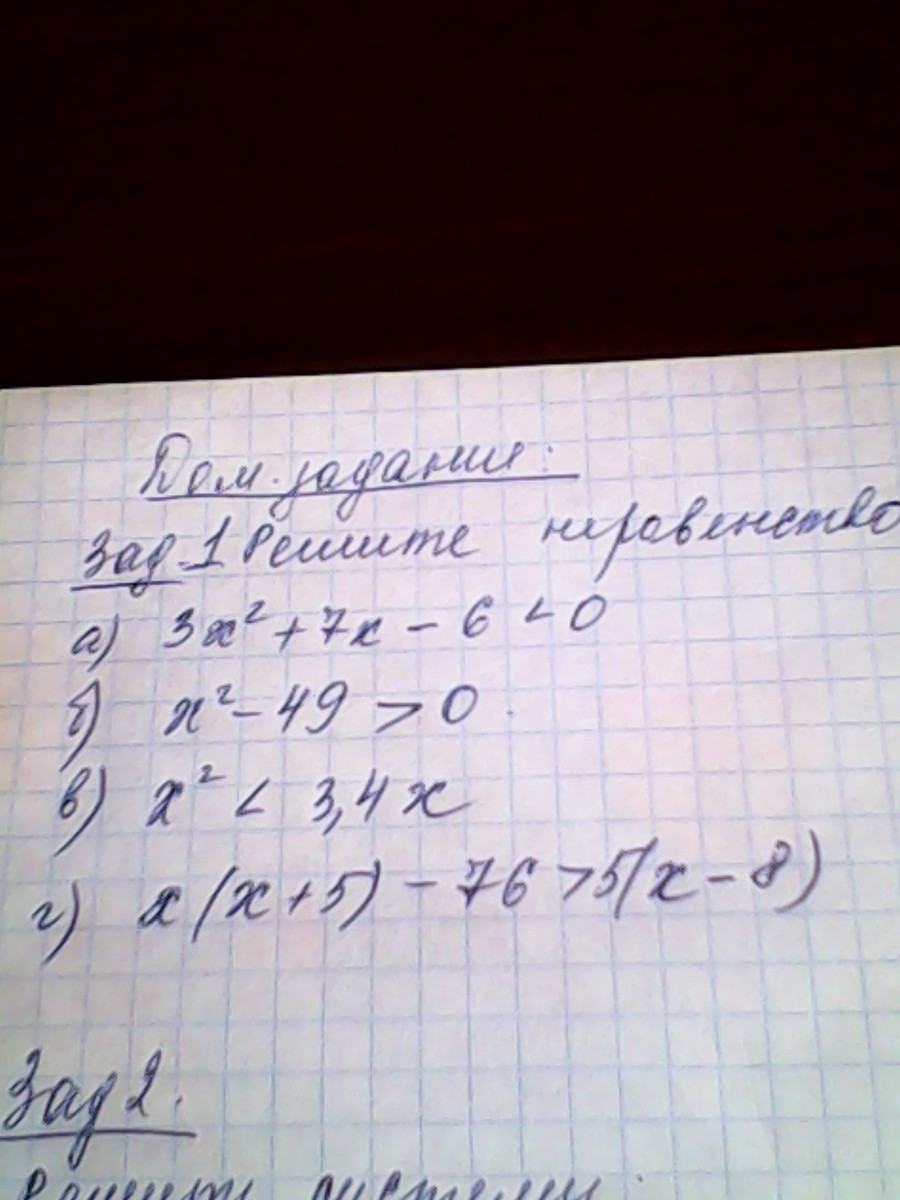 Дом. задание:
Зад. 1 Решите неравенство
а) 3x² + 7x - 6 < 0
б) x² - 49 > 0
в) x² < 3,4x
г) x(x+5) - 76 > 5(x-8)
Зад 2.